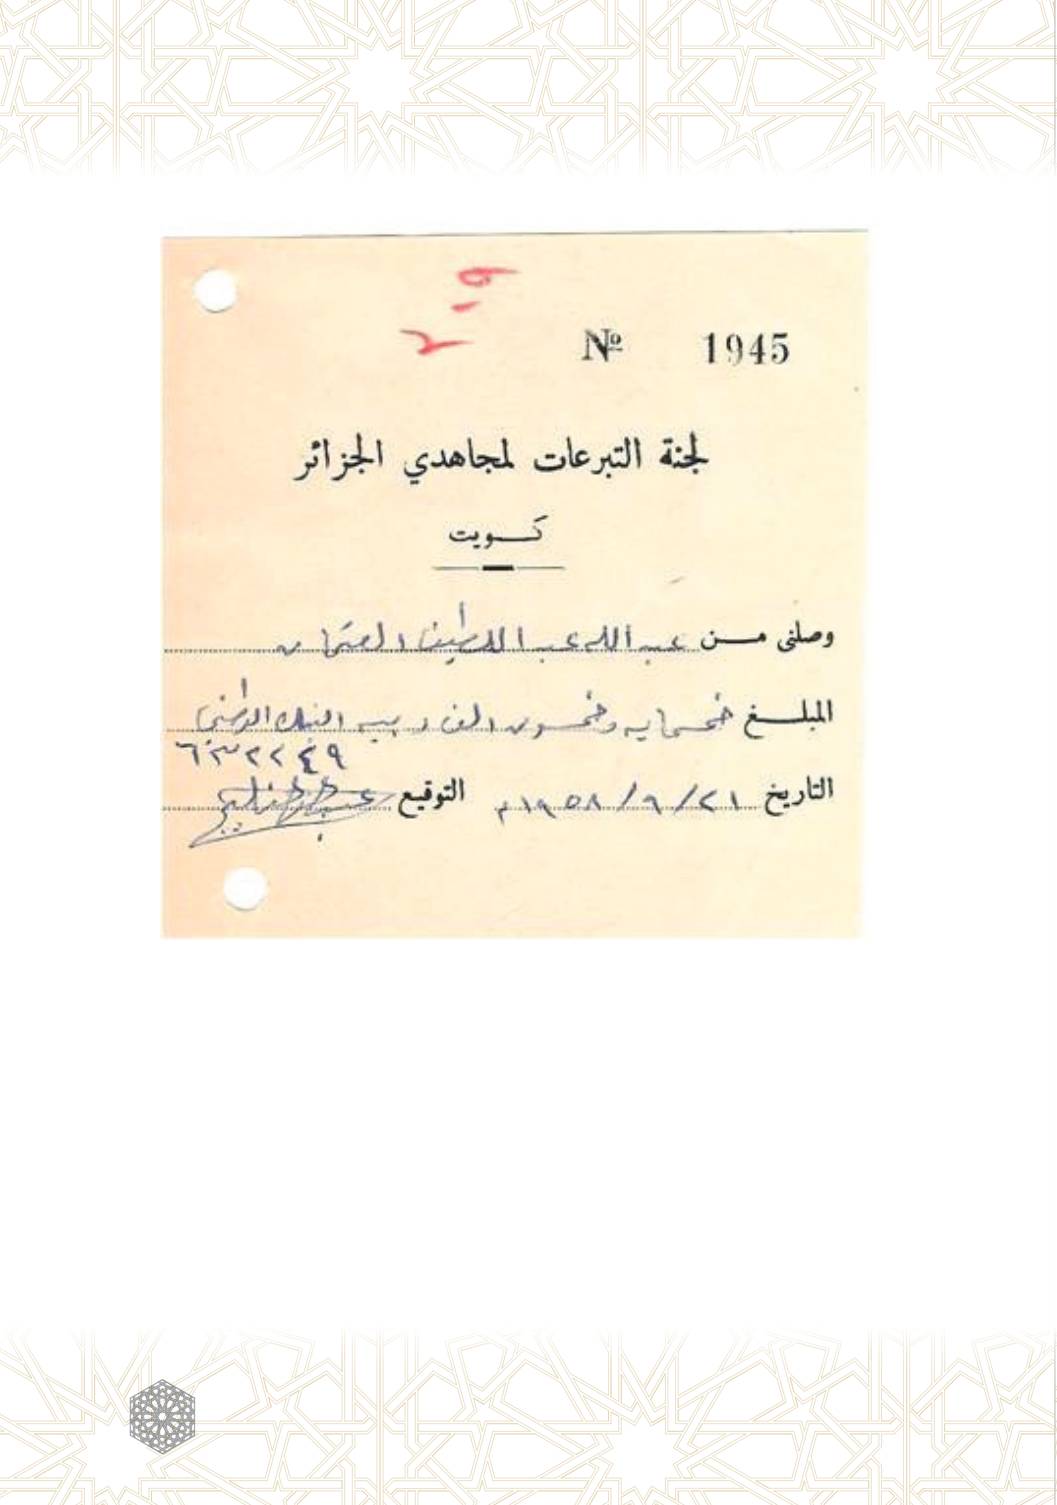 ٢٠٩
№ 1945
لجنة التبرعات لمجاهدي الجزائر
كويت
وصلني من عبد الله عبد اللطيف العثمان
المبلغ خمسمايه وخمسون الف ربيه البنك الوطني
٦٣٢٢٤٩
التاريخ ٢١/٩/١٩٥٨م التوقيع